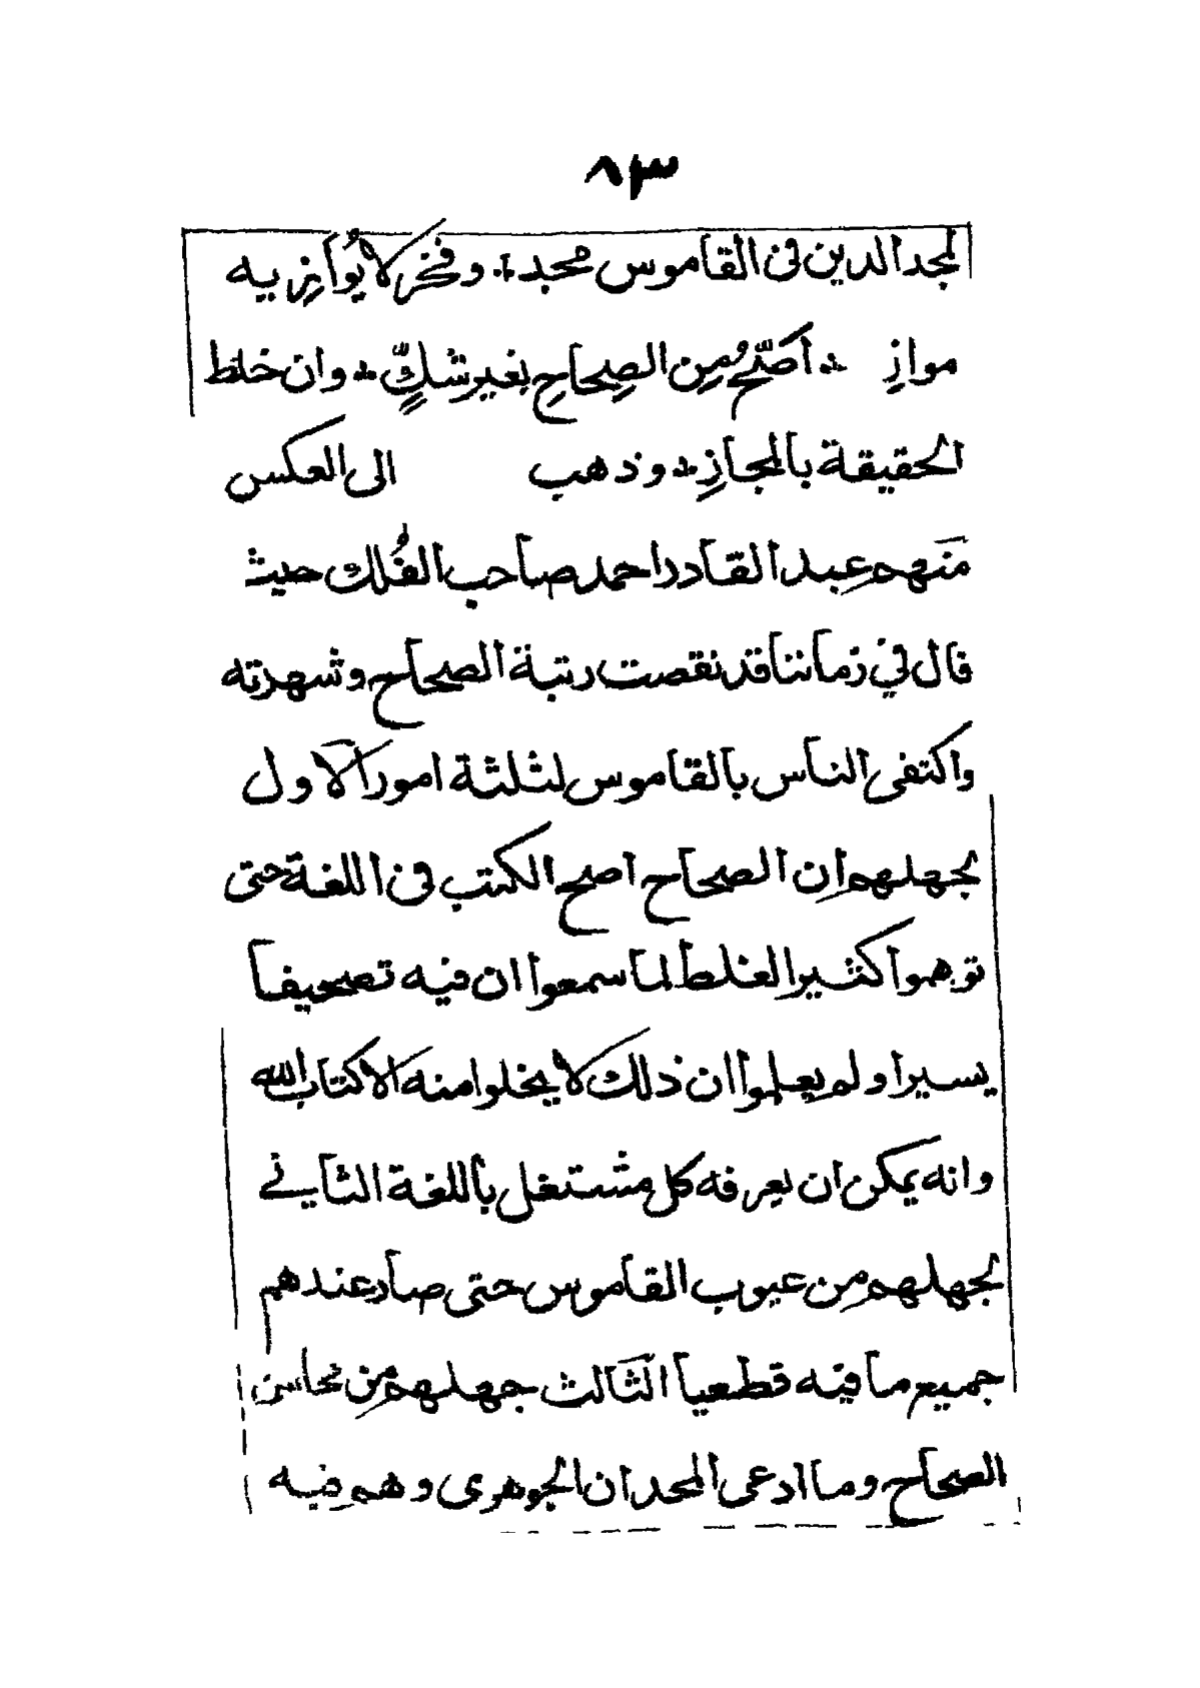 ٨٣
لمجد الدين فى القاموس مجد ؞ وفخر لا يُوازيه
موازِ ؞ اَصَحُّ مِن الصِحاحِ بغير شكٍّ ؞ وان خلط
الحقيقة بالمجازِ ؞ وذهب الى العكس
منهم عبد القادر احمد صاحب الفُلك حيث
قال فى زماننا قد نقصت رتبة الصحاح وشهرته
واكتفى الناس بالقاموس لثلثة امور الاول
لجهلهم ان الصحاح اصح الكتب فى اللغة حتى
توهموا كثير الغلط لما سمعوا ان فيه تصحيفا
يسيرا ولم يعلموا ان ذلك لا يخلوا منه الا كتاب الله
وانه يمكن ان يعرفه كل مشتغل باللغة الثاني
لجهلهم من عيوب القاموس حتى صار عندهم
جميع ما فيه قطعيا الثالث جهلهم من محاسن
الصحاح وما ادعى المجد ان الجوهرى وهم فيه